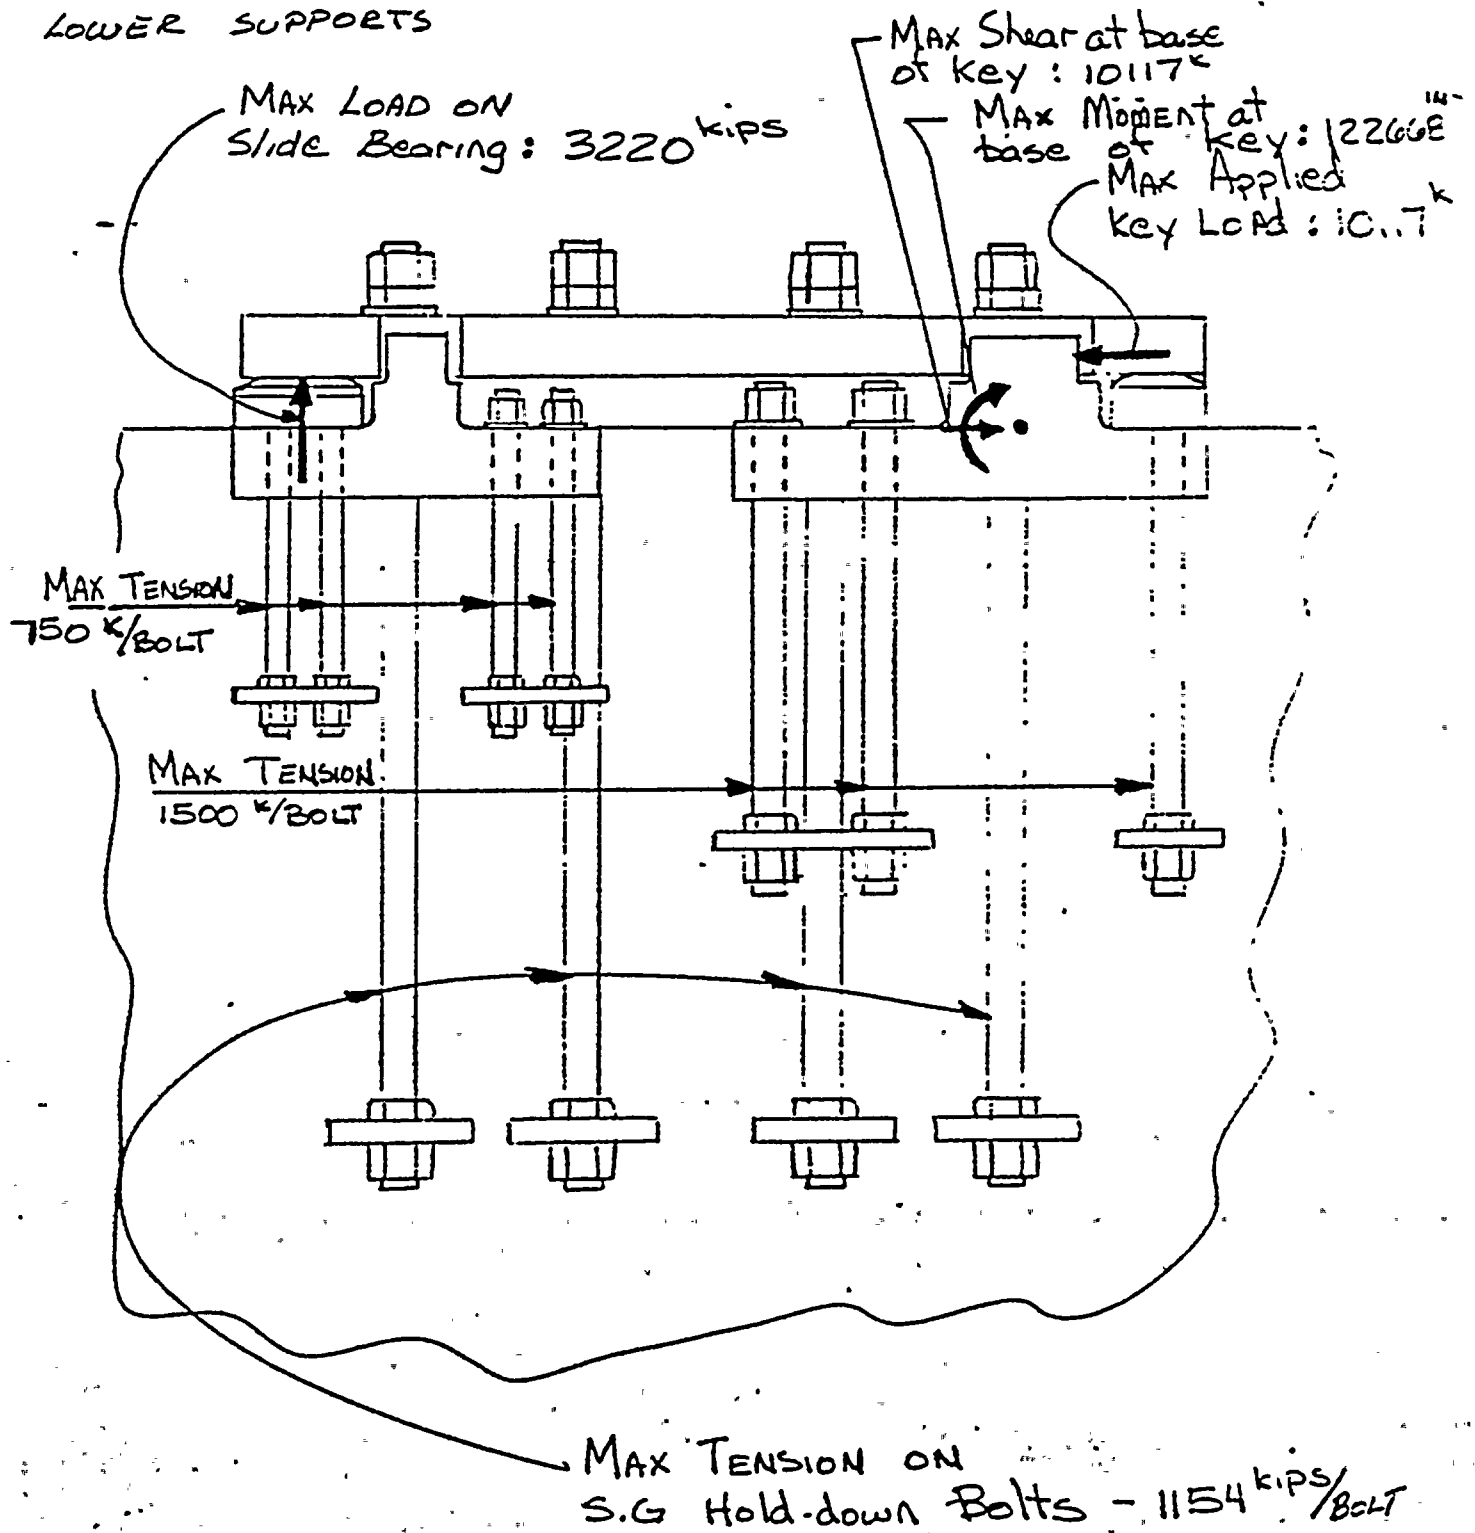 LOWER SUPPORTS
MAX LOAD ON
Slide Bearing: 3220 kips
MAX Shear at base
of key : 10117 k
MAX MOMENT at
base of key:
MAX Applied
key LOAD :
MAX TENSION
750 K/BOLT
MAX TENSION
1500 K/BOLT
MAX TENSION ON
S.G Hold-down Bolts - 1154 kips/BOLT